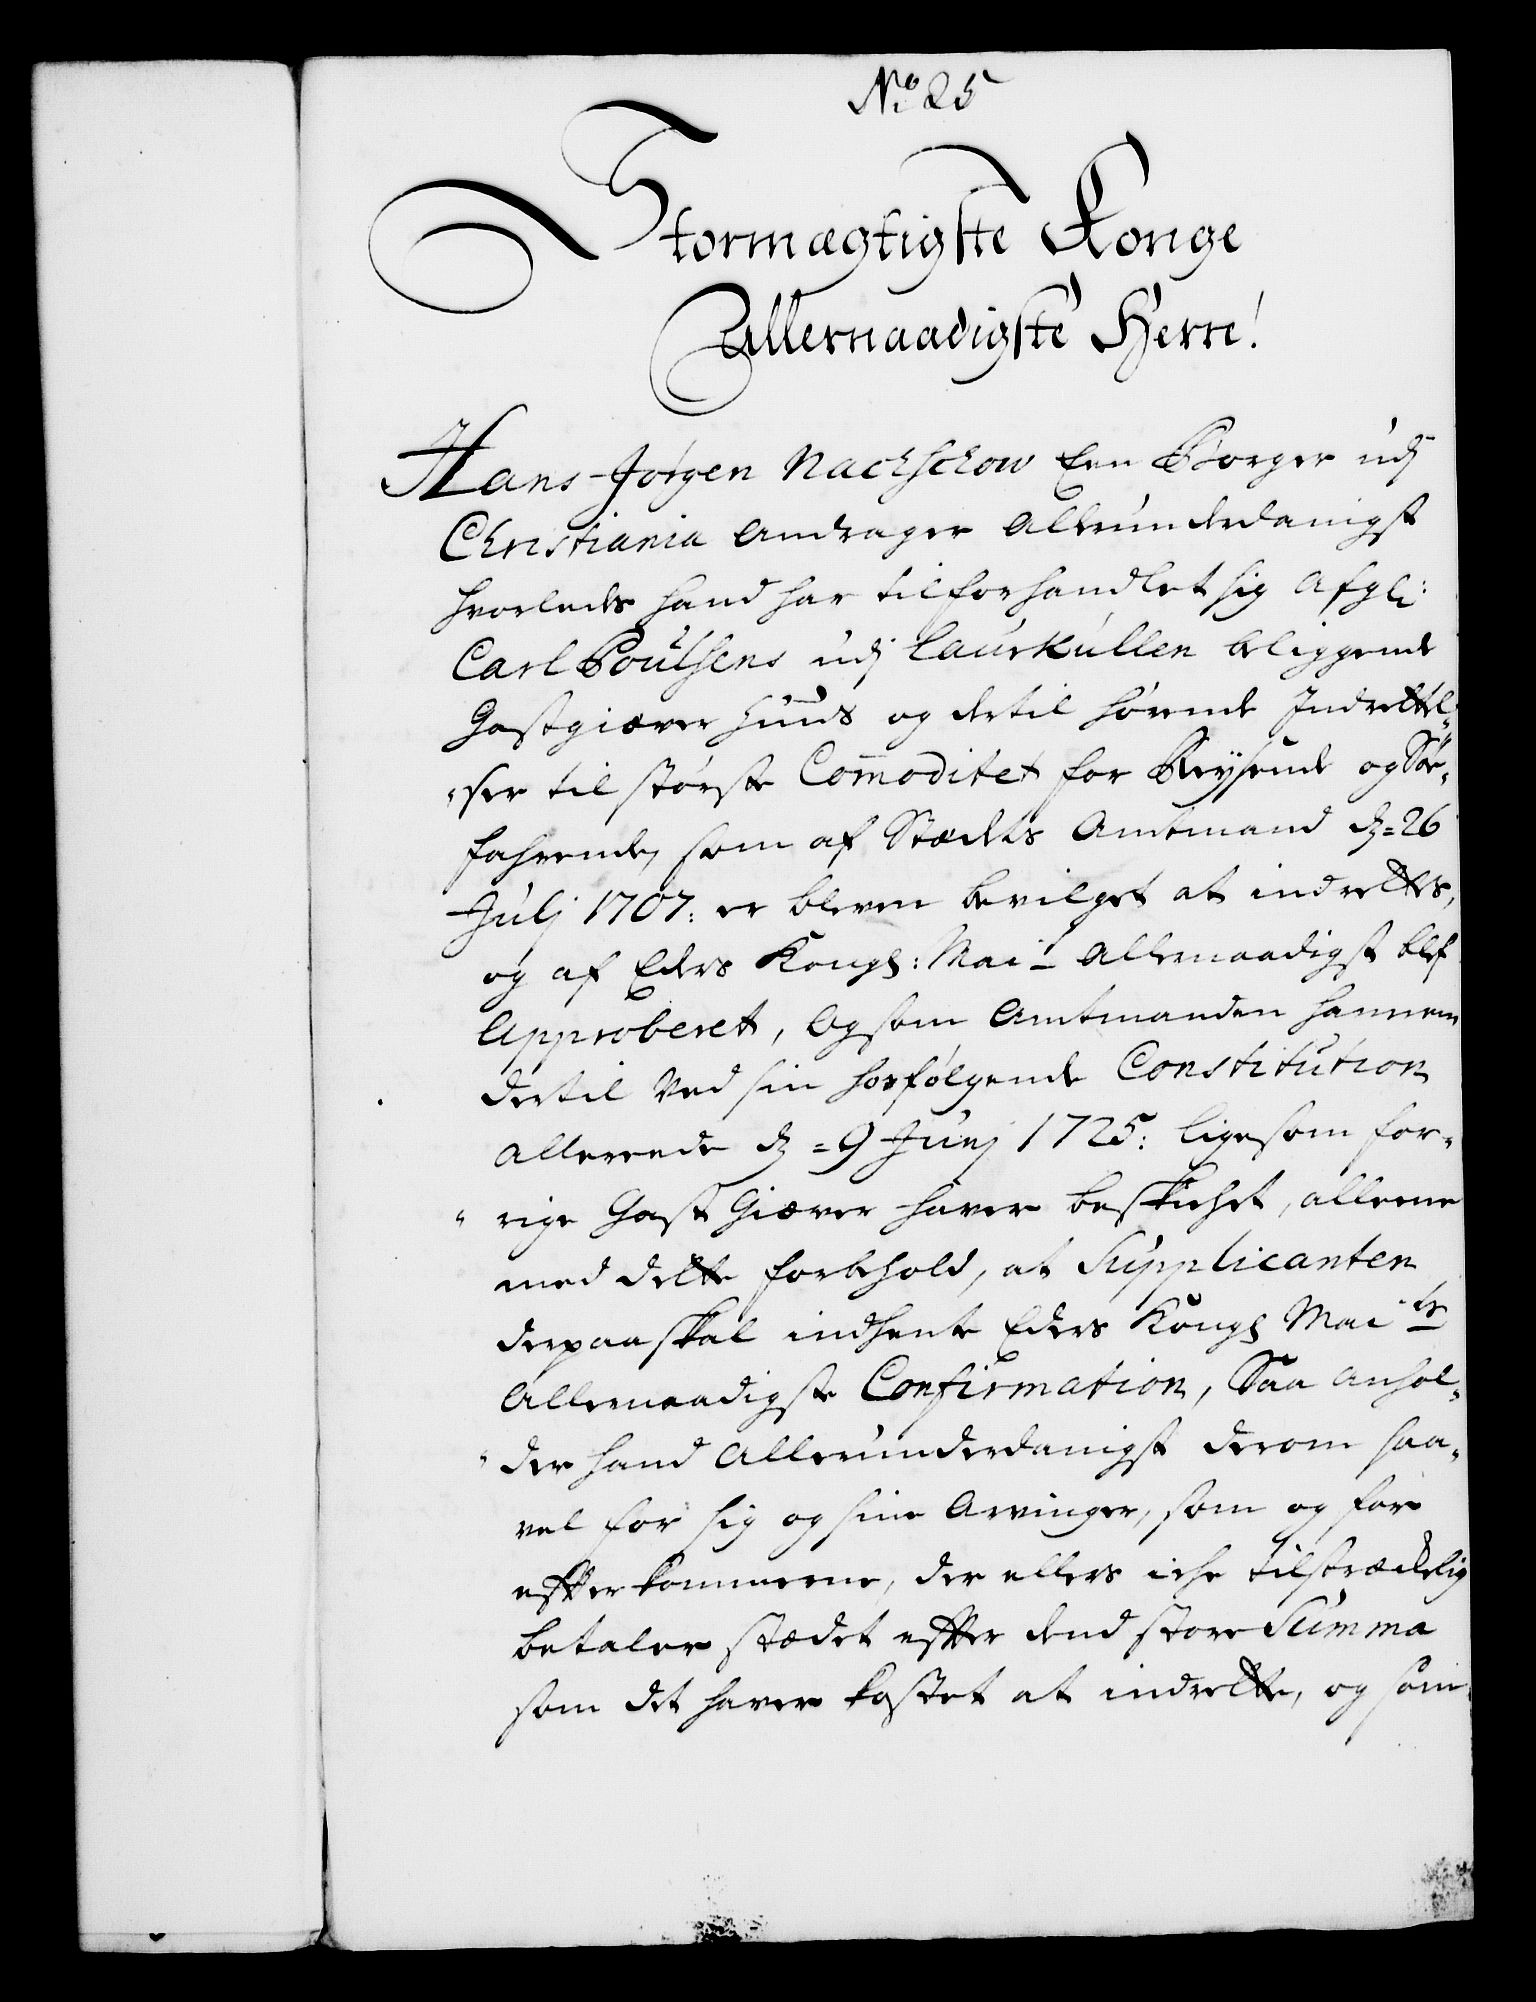 No 25
Stormægtigste Konge
Allernaadigste Herre!
Hans Jörgen Nachschow Een Borger udj
Christiania Andrager Allerunderdanigst
hvorledes hand har tilforhandlet sig Afgl:
Carl Poulsens udj Laurkullen beliggende
Gastgiæver Huus og dertil hörende Indrettel„
„ser til störste Comoditet for Reysende og Söe„
fahrende, som af Stædets Amtmand d: 26
Julj 1707: er bleven bevilget at indrettes,
og af Eders Kongl: Mait Allernaadigst blef
Approberet, Og som Amtmanden hannem
dertil Ved sin hosfölgende Constitution
allereede d: 9 Junj 1725: ligesom for„
„rige Gast Giæver haver beskichet, alleene
med dette forbehold, at Supplicanten
derpaa skal indhente Eders Kongl Maits
Allernaadigste Confirmation, Saa anhol„
„der hand Allerunderdanigst derom saa„
vel for sig og sine Arvinger, som og for
efterkommerne, der ellers iche tilstræckelig
betaler stædet efter dend store Summa
som det haver kostet at indrette, og som